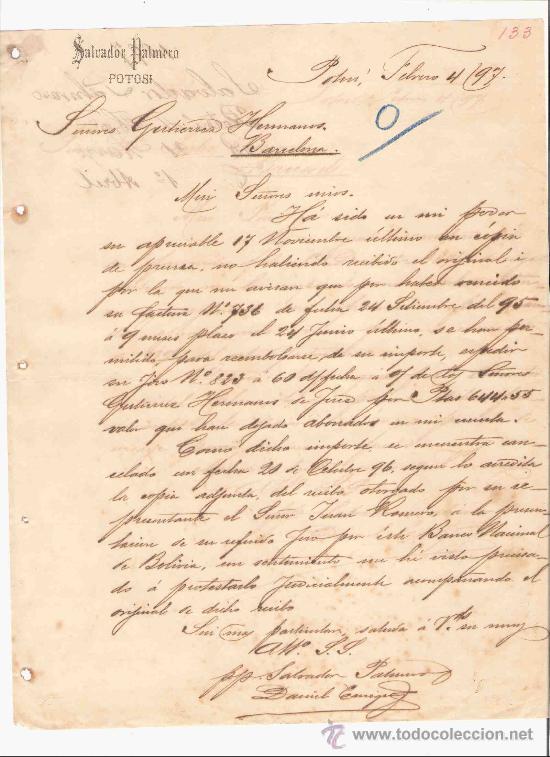 133
Salvador Palmero
POTOSI
Potosí, Febrero 4/97.
Señores Gutierrez Hermanos.
Barcelona.
Muy Señores mios.
Há sido en mi poder
su apreciable 17 Noviembre último en copia
de prensa, no habiendo recibido el original i
por la que me avisan que por haber vencido
su factura Nº 736 de fecha 24 Setiembre del 95
á 9 meses plazo el 24 Junio último, se han per-
mitido para reembolsarse, de su importe, espedir
su Jiro Nº 823 á 60 d/fecha á o/ de los Señores
Gutierrez Hermanos de Jerez por Ptas 644.55
valor que han dejado abonados en mi cuenta.
Como dicho importe, se encuentra can-
celado en fecha 20 de Octubre 96, segun lo acredita
la copia adjunta, del recibo otorgado por su re-
presentante el Señor Juan Romero, á la presen-
tacion de su referido Jiro por este Banco Nacional
de Bolivia, con sentimiento me hé visto precisa-
do á protestarlo Judicialmente acompañando el
original de dicho recibo
Sin mas particular, saluda á Vds su muy
Atto S.S.
pp. Salvador Palmero
Daniel
www.todocoleccion.net